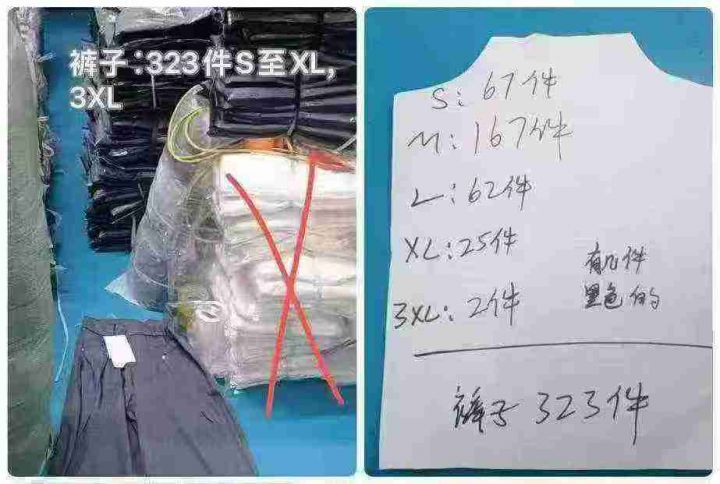 裤子:323件S至XL,
3XL
S:67件
M:167件
L:62件
XL:25件
有几件
黑色的
3XL:2件
裤子 323件